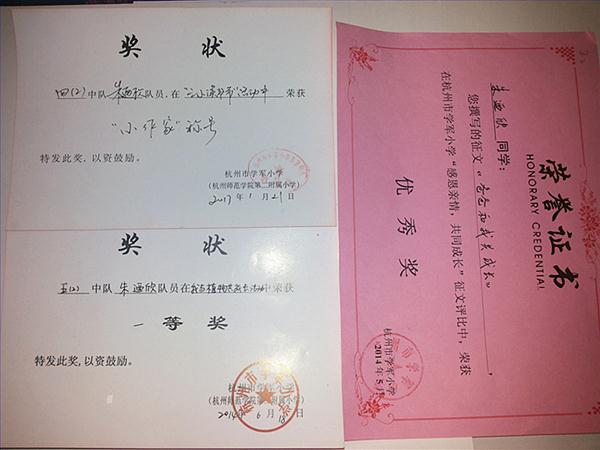 奖 状
四(2)中队朱迺欣队员，在"三小读书节"活动中荣获
"小作家"称号
特发此奖，以资鼓励。
杭州市学军小学
(杭州师范学院第二附属小学)
年 1 月 21 日
奖 状
五(2)中队 朱迺欣队员在 中荣获
一等奖
特发此奖，以资鼓励。
杭州市学军小学
(杭州师范学院第二附属小学)
2014年 6 月 18 日
荣誉证书
HONORARY CREDENTIAL
朱迺欣 同学：
您撰写的征文《爸爸和我共成长》，
在杭州市学军小学“感恩亲情，共同成长”征文评比中，荣获
优秀奖
杭州市学军小学
2014年5月